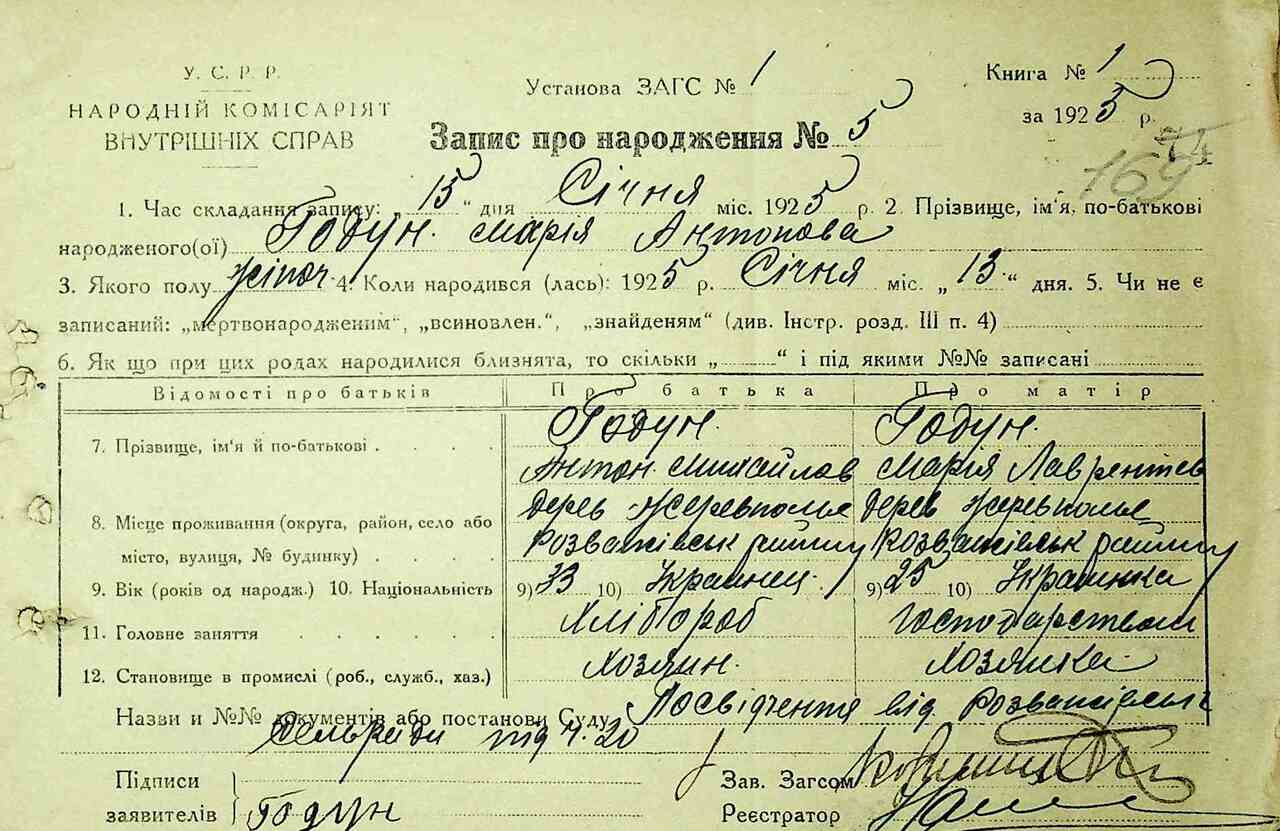 У. С. Р. Р.
НАРОДНІЙ КОМІСАРІЯТ
ВНУТРІШНІХ СПРАВ
Установа ЗАГС № 1
Книга № 1
за 1925 р.
Запис про народження № 5
169 74
1. Час складання запису: „15“ дня Січня міс. 1925 р. 2. Прізвище, ім'я, по-батькові
народженого(ої) Годун Марія Антонова
3. Якого полу жіноч 4. Коли народився (лась): 1925 р. Січня міс. „13“ дня. 5. Чи не є
записаний: „мертвонародженим“, „всиновлен.“, „знайденям“ (див. Інстр. розд. III п. 4)
6. Як що при цих родах народилися близнята, то скільки „ “ і під якими №№ записані
Відомості про батьків Про батька Про матір
7. Прізвище, ім'я й по-батькові . . . . Годун. Годун.
Антон Михайлов Марія Лаврентьев
8. Місце проживання (округа, район, село або дерев Жеревполье дерев Жеревполье
місто, вулиця, № будинку) . . . . Розважівськ району Розважівськ району
9. Вік (років од народж.) 10. Національність 9) 33 10) Украинец. 9) 25 10) Украинка
11. Головне заняття . . . . . . Хлібороб Господарством
12. Становище в промислі (роб., служб., хаз.) Хозяин. Хозяйка
Назви и №№ документів або постанови Суду Посвідчення від Розважівськ
Сельради під ч. 20
Підписи
заявителів Годун
Зав. Загсом
Реєстратор